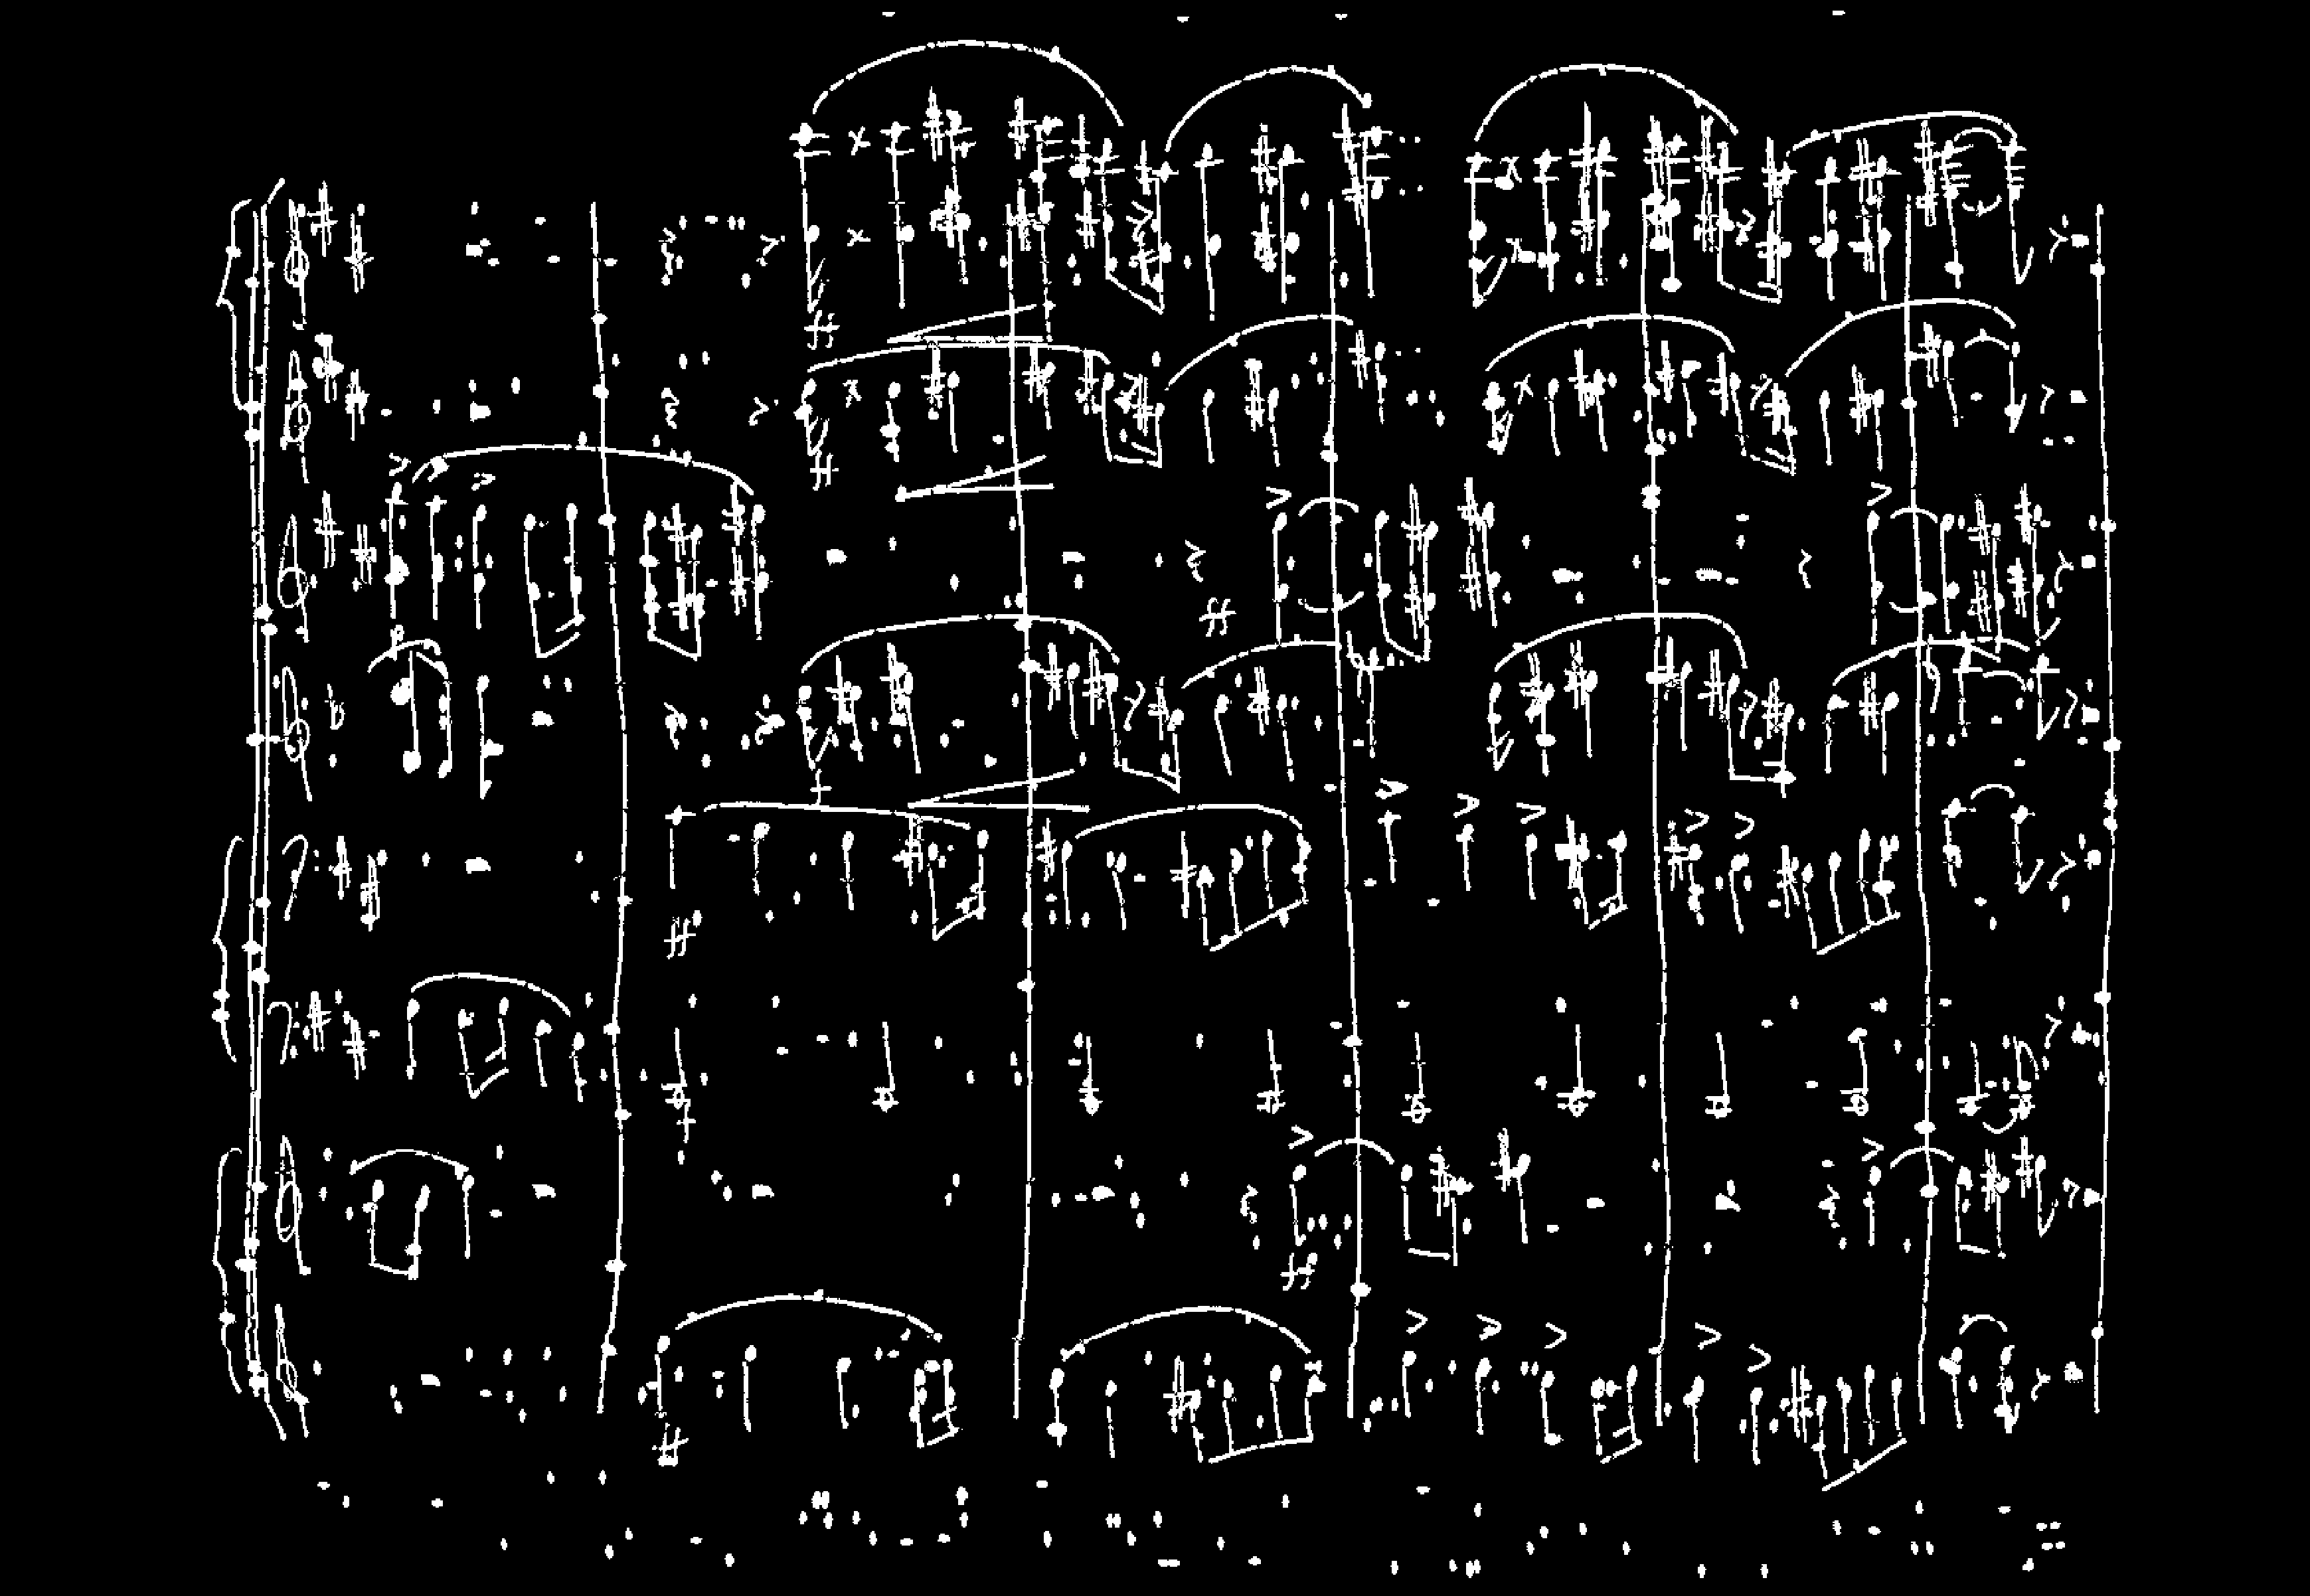 ff
ff
ff
f
ff
f
ff
ff